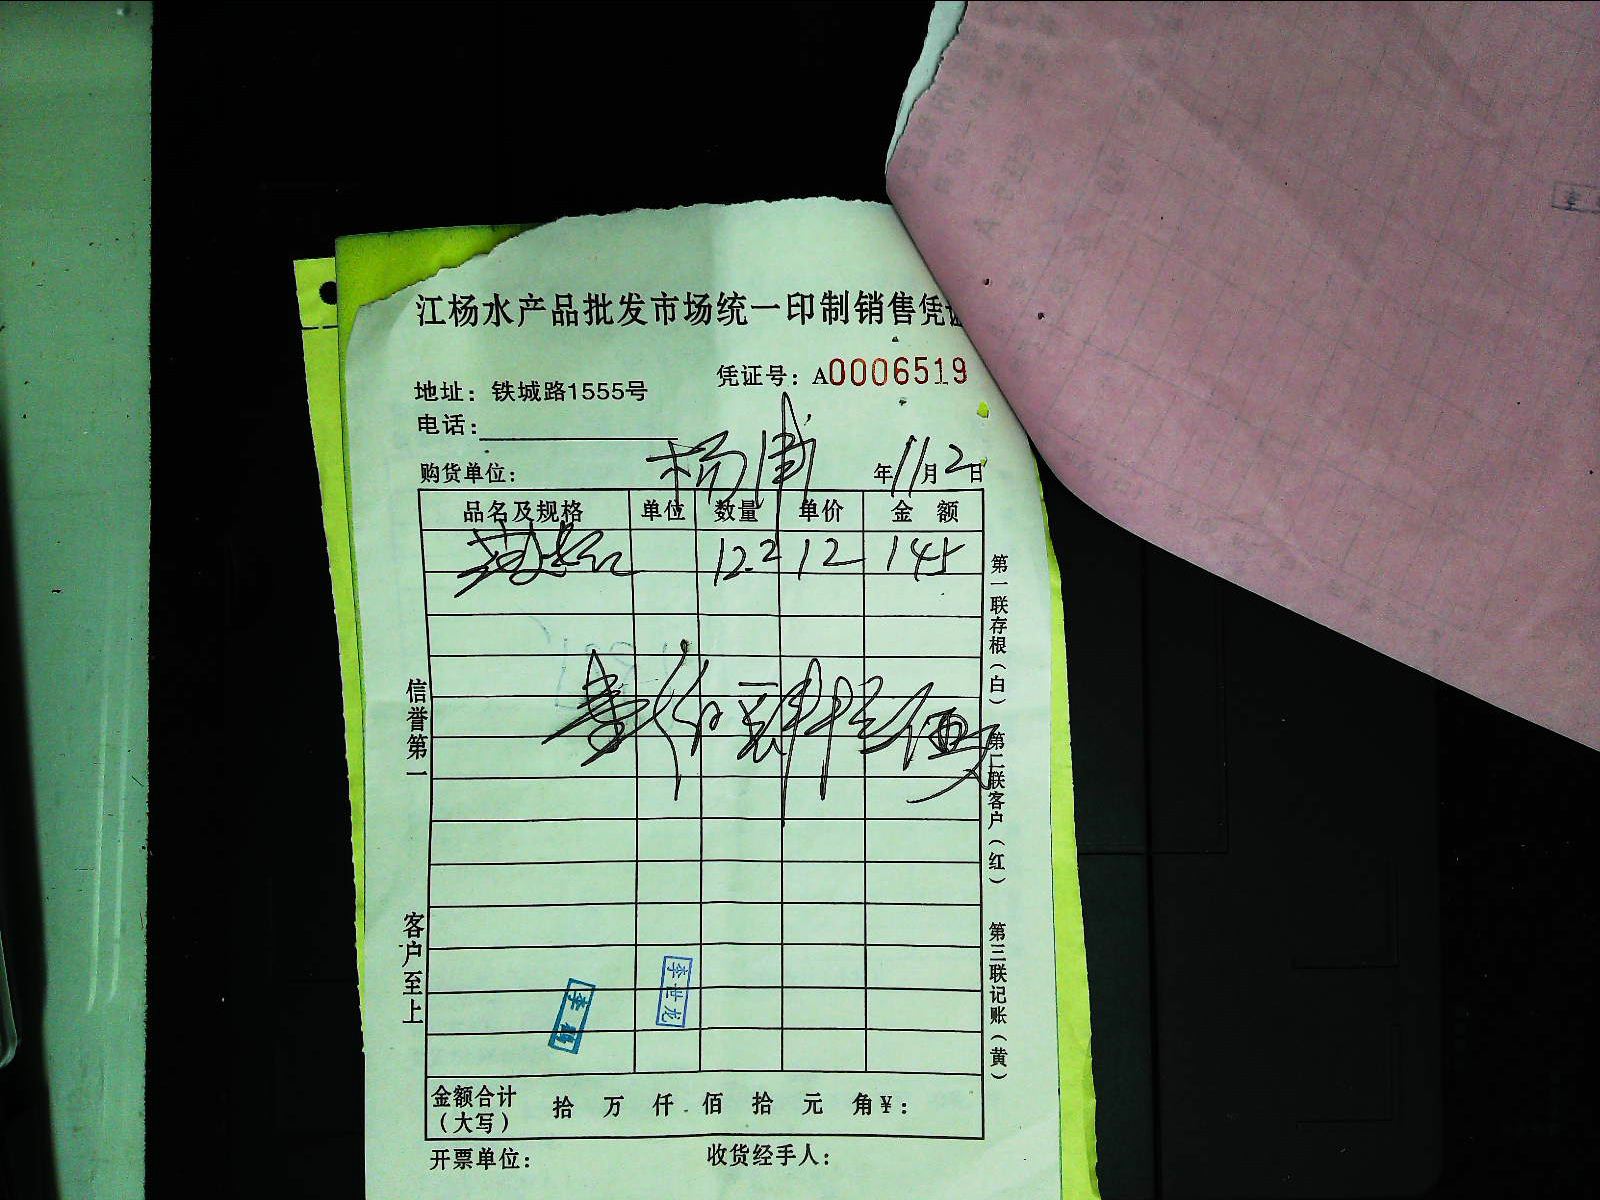 江杨水产品批发市场统一印制销售凭证
凭证号：A0006519
地址：铁城路1555号
电话：
购货单位： 杨浦 年11月2日
品名及规格 单位 数量 单价 金额
12.2 12 145
壹佰肆拾伍
信誉第一
客户至上
第一联存根（白） 第二联客户（红） 第三联记账（黄）
李世龙
金额合计（大写） 拾 万 仟 佰 拾 元 角￥：
开票单位： 收货经手人：